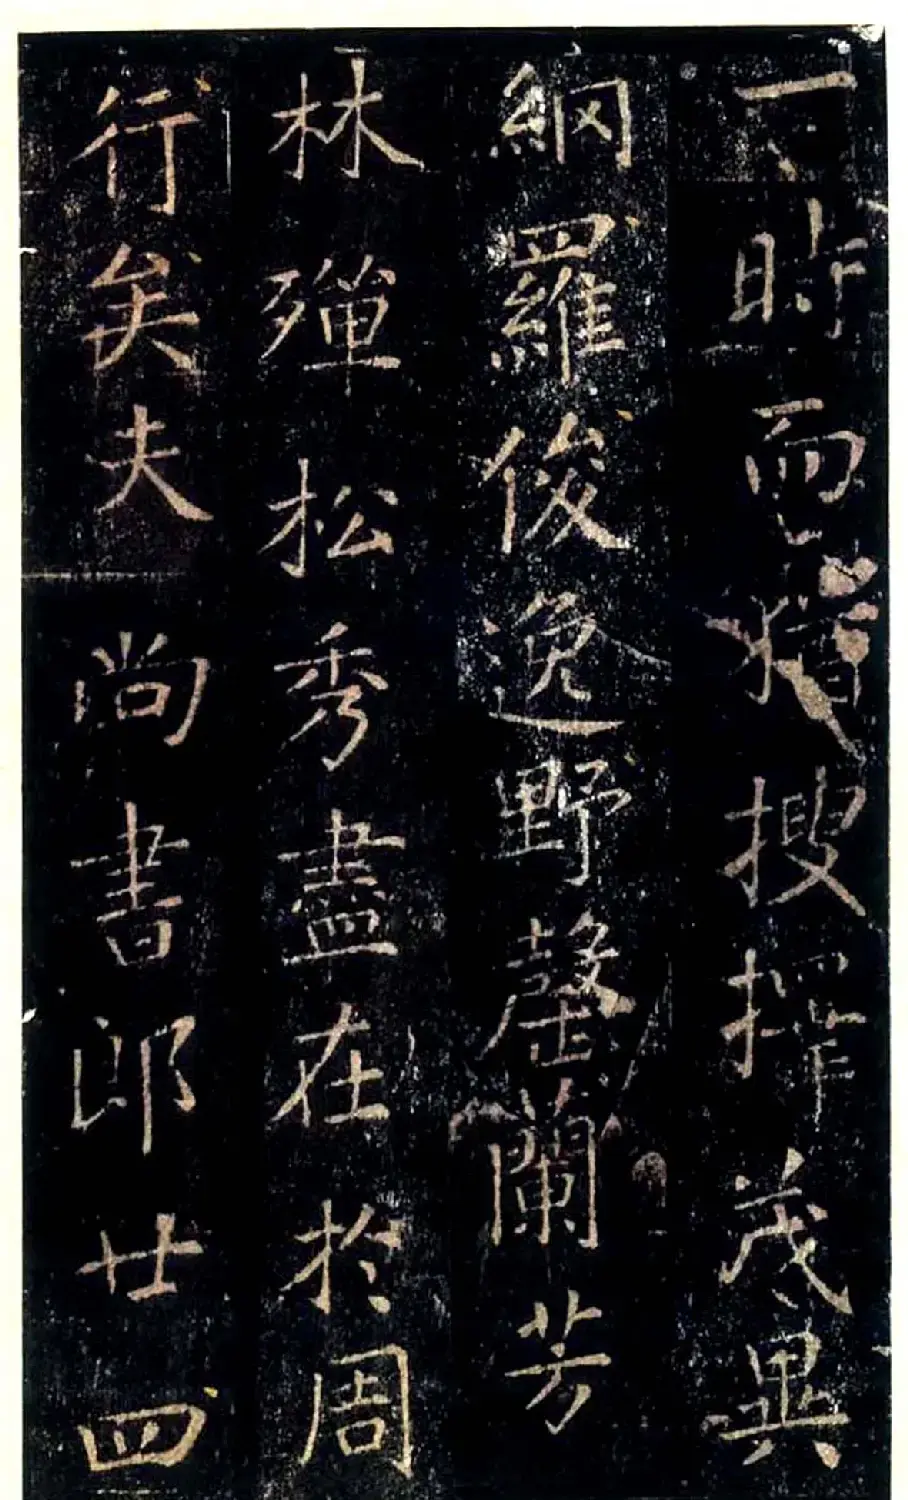 下時而猶搜擇茂異
網羅俊逸野罄蘭芳
林殫松秀盡在於周
行矣夫尚書郎廿四